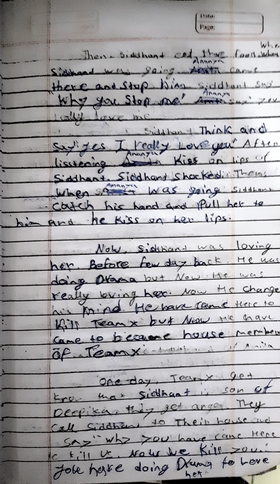 Date:
Page:
Then Siddhant and the
Siddhant was going. Ananya came
there and stop him. Siddhant say
"Why you stop me" Ananya say "you
really love me
Siddhant Think and
say "yes I really Love you" After
lisstening Ananya Kiss on lips of
Siddhant. Siddhant shocked. Then
When Ananya was going Siddhant
catch his hand and Pull her to
him and he Kiss on her lips.
Now, Siddhant was loving
her. Before few day back He was
doing Drama but Now He was
really loving her. Now He change
his Mind He have came Here to
Kill Teamx but Now He have
came to become house member
of Teamx
One day, Teamx got
know that Siddhant is son of
Deepika, they get anger They
call Siddhant to Their house and
say "why you have came Here
to kill us. Now we Kill you.
You have doing Drama to Love
her.